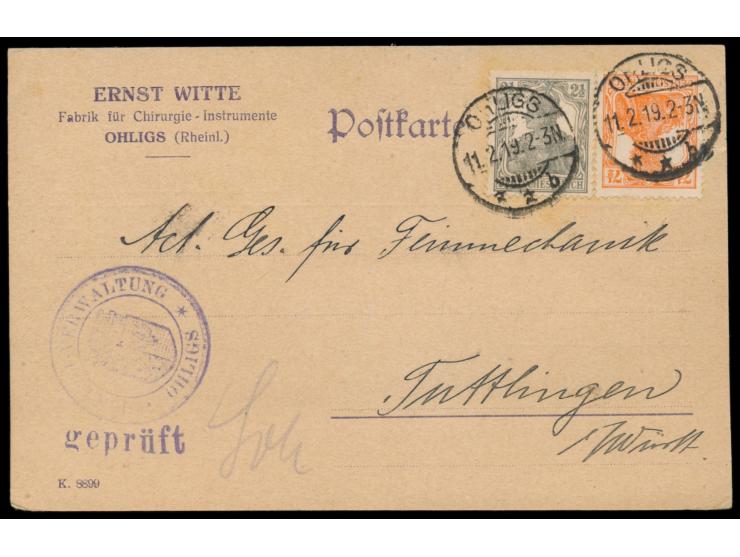 ERNST WITTE
Fabrik für Chirurgie-Instrumente
OHLIGS (Rheinl.)
Postkarte
2½ 2½
OHLIGS
11.2.19.2-3N.
* * b
OHLIGS
11.2.19.2-3N.
* * b
Act. Ges. für Feinmechanik
Tuttlingen
i/Württ.
VERWALTUNG * OHLIGS
geprüft
K. 8899